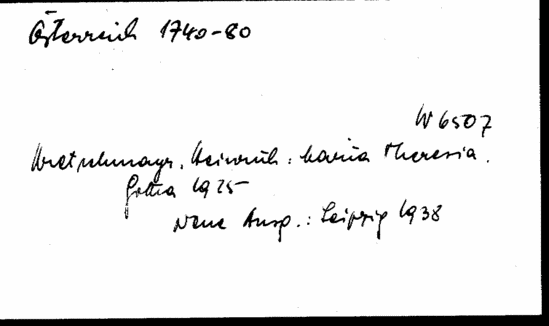 Österreich 1740-80
W 6507
Kretschmayr, Heinrich: Maria Theresia.
Gotha 1925
Neue Ausg.: Leipzig 1938